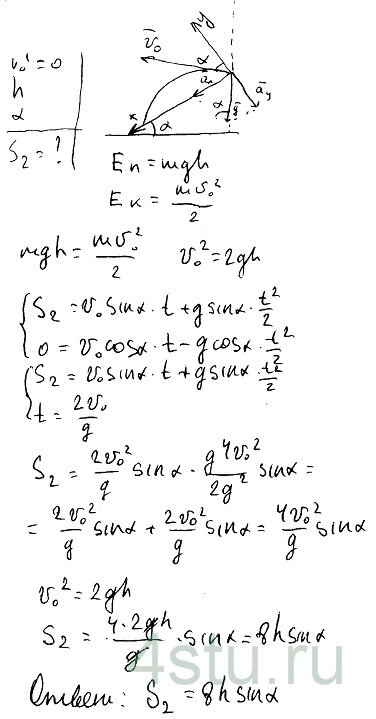 v₀' = 0
h
α
S₂ = ?
y
v̄₀
α
aₓ
ā_y
α
ḡ
x
α
Eп = mgh
Eк = mv₀²/2
mgh = mv₀²/2 v₀² = 2gh
{ S₂ = v₀ sinα · t + g sinα · t²/2
0 = v₀ cosα · t - g cosα · t²/2
{ S₂ = v₀ sinα · t + g sinα · t²/2
t = 2v₀/g
S₂ = 2v₀²/g sinα · g4v₀²/2g² sinα =
= 2v₀²/g sinα + 2v₀²/g sinα = 4v₀²/g sinα
v₀² = 2gh
S₂ = 4·2gh/g · sinα = 8h sinα
4stu.ru
Ответ: S₂ = 8h sinα